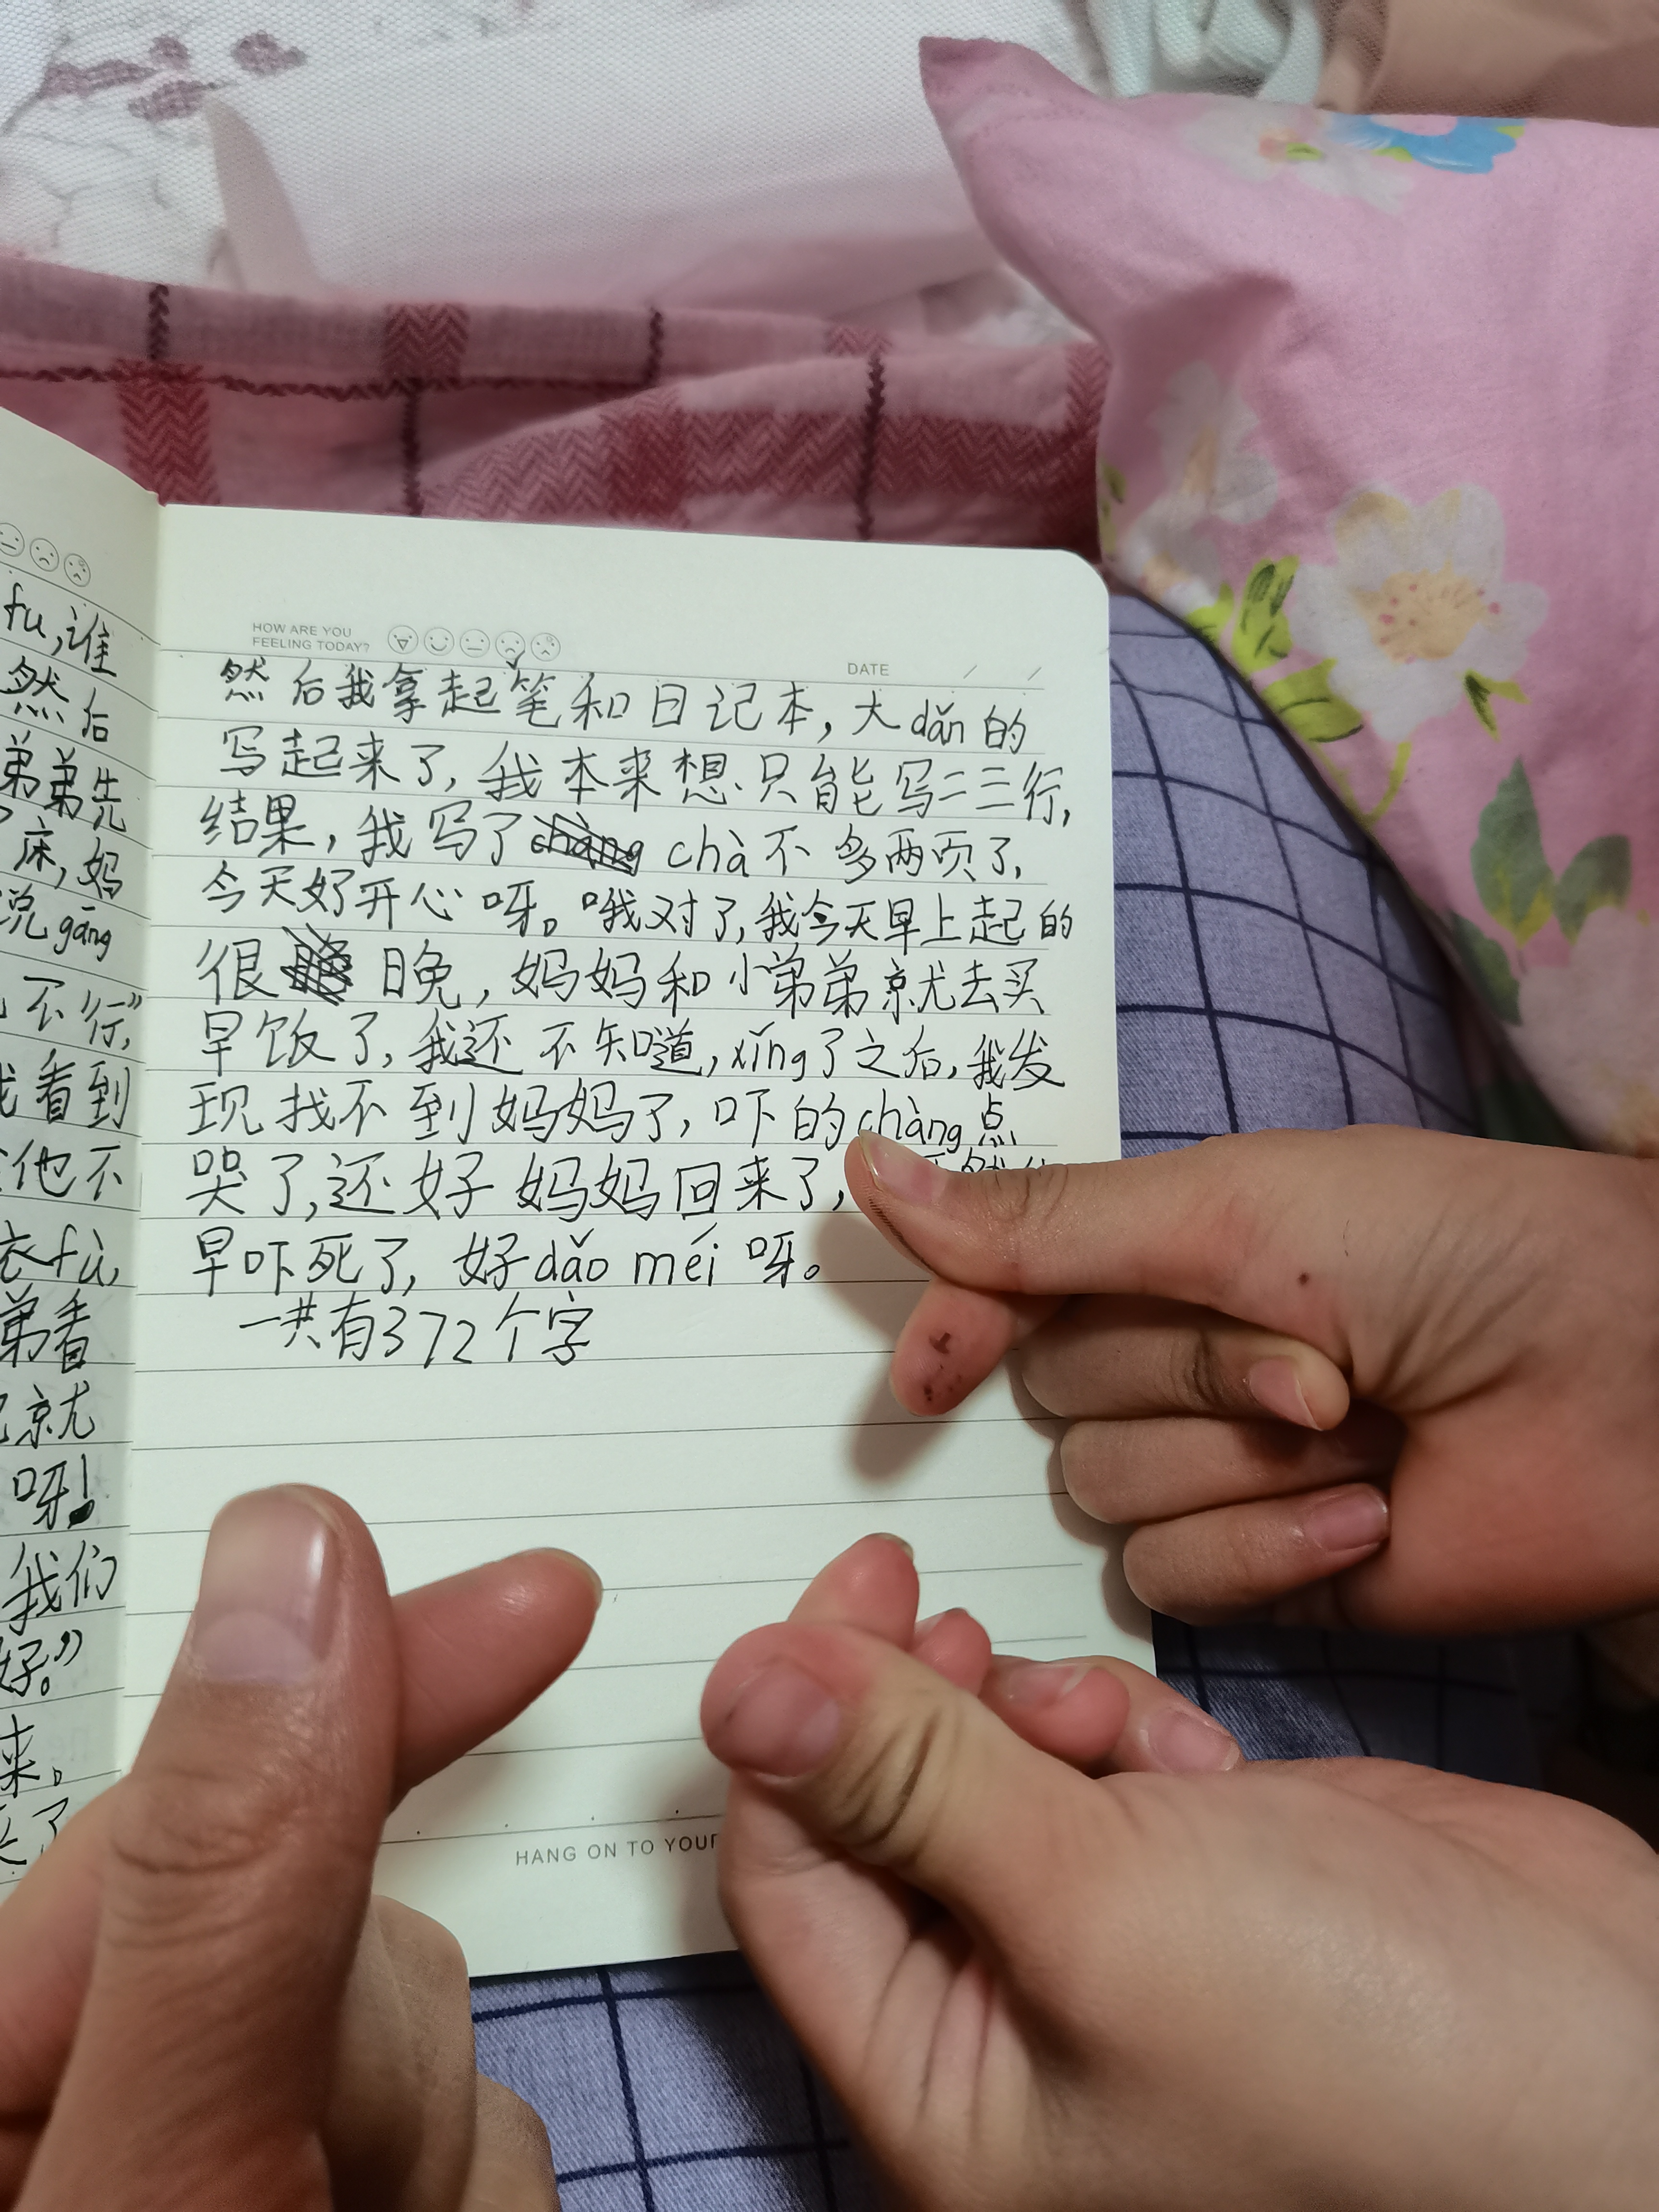 fu,谁
然后
弟弟先
床,妈
说gāng
不行”
看到
他不
衣fu,
弟看
就
呀!
我们
好。”
来。
了
HOW ARE YOU
FEELING TODAY?
DATE / /
然后我拿起笔和日记本,大dǎn的
写起来了,我本来想只能写二三行,
结果,我写了chà不多两页了,
今天好开心呀。哦对了,我今天早上起的
很晚,妈妈和小弟弟就去买
早饭了,我还不知道,xǐng了之后,我发
现找不到妈妈了,吓的chàng点
哭了,还好妈妈回来了,
早吓死了,好dǎo méi呀。
一共有372个字
HANG ON TO YOUR